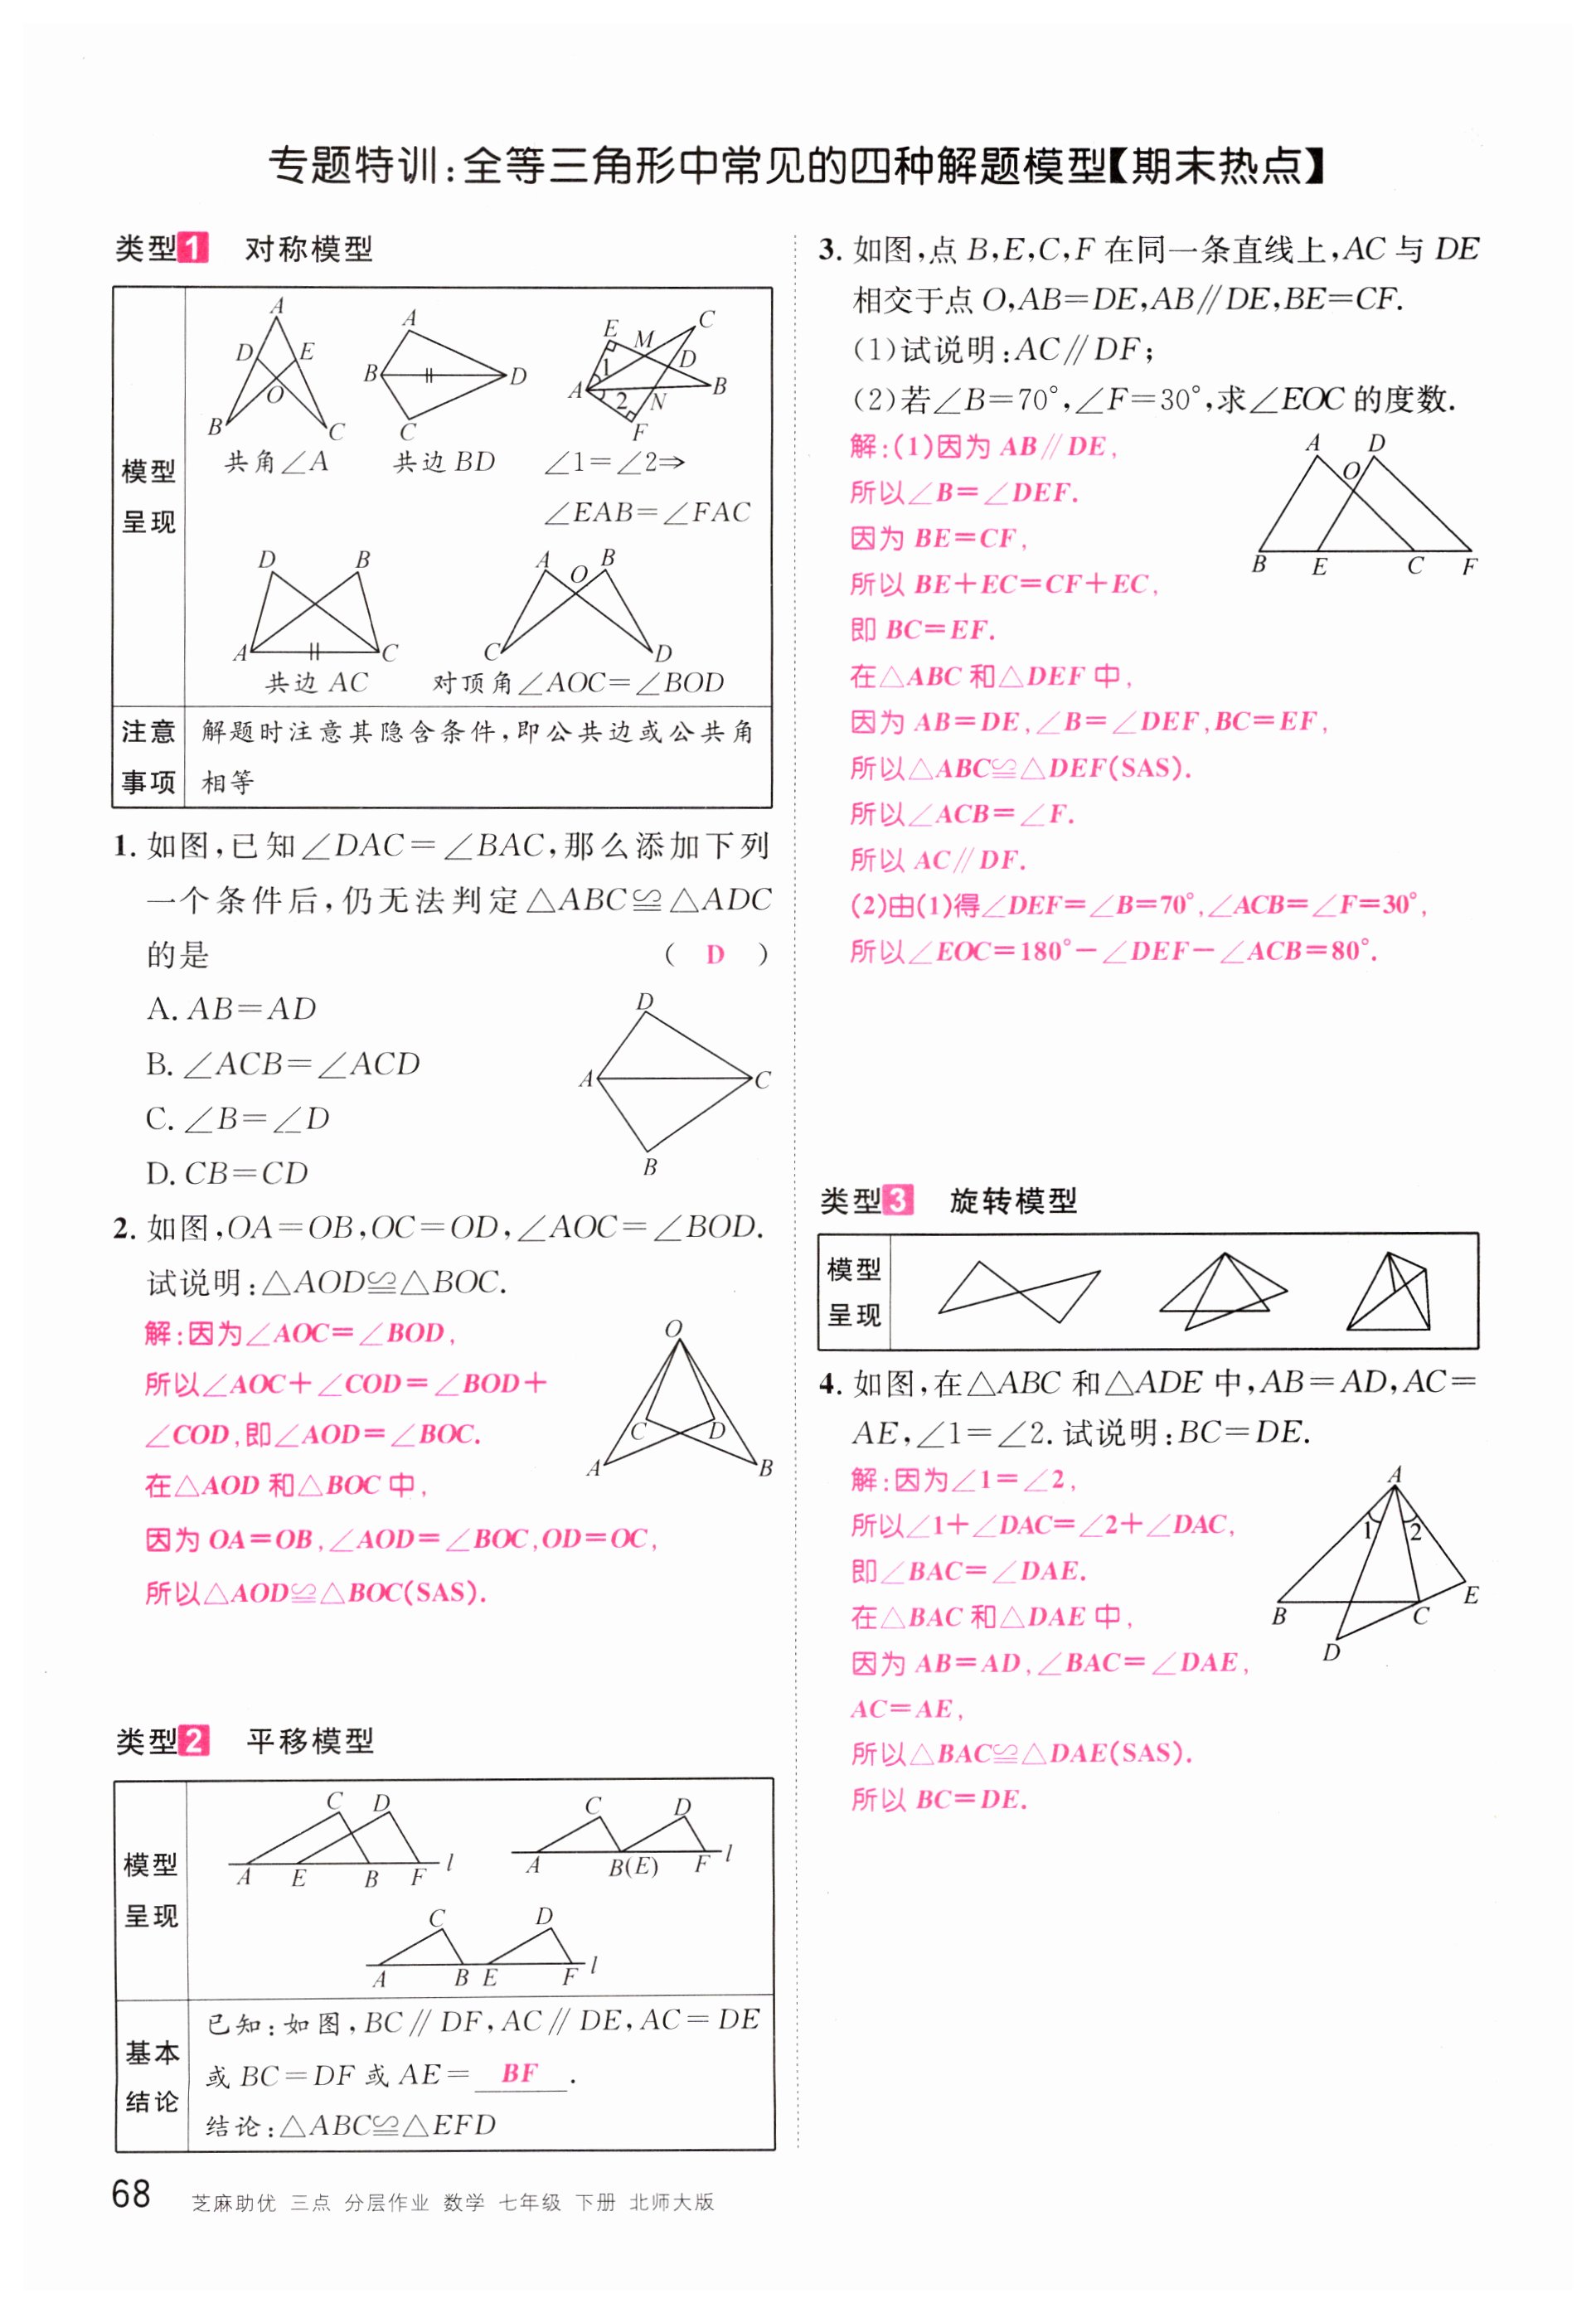 专题特训:全等三角形中常见的四种解题模型【期末热点】
类型1 对称模型
模型
呈现
A
D
E
O
B
C
共角∠A
A
B
D
C
共边BD
E
M
C
1
D
A
B
2
N
F
∠1=∠2⇒
∠EAB=∠FAC
D
B
A
C
共边 AC
A
O
B
C
D
对顶角∠AOC=∠BOD
注意
事项
解题时注意其隐含条件,即公共边或公共角
相等
1. 如图,已知∠DAC=∠BAC,那么添加下列
一个条件后,仍无法判定△ABC≌△ADC
的是 ( D )
A. AB=AD
B. ∠ACB=∠ACD
C. ∠B=∠D
D. CB=CD
D
A
C
B
2. 如图,OA=OB,OC=OD,∠AOC=∠BOD.
试说明:△AOD≌△BOC.
解:因为∠AOC=∠BOD,
所以∠AOC+∠COD=∠BOD+
∠COD,即∠AOD=∠BOC.
在△AOD 和△BOC 中,
因为 OA=OB,∠AOD=∠BOC,OD=OC,
所以△AOD≌△BOC(SAS).
O
C
D
A
B
类型2 平移模型
模型
呈现
C
D
A
E
B
F
l
C
D
A
B(E)
F
l
C
D
A
B
E
F
l
基本
结论
已知:如图,BC∥DF,AC∥DE,AC=DE
或 BC=DF 或 AE= BF .
结论:△ABC≌△EFD
3. 如图,点 B,E,C,F 在同一条直线上,AC 与 DE
相交于点 O,AB=DE,AB∥DE,BE=CF.
(1)试说明:AC∥DF;
(2)若∠B=70°,∠F=30°,求∠EOC 的度数.
解:(1)因为 AB∥DE,
所以∠B=∠DEF.
因为 BE=CF,
所以 BE+EC=CF+EC,
即 BC=EF.
在△ABC 和△DEF 中,
因为 AB=DE,∠B=∠DEF,BC=EF,
所以△ABC≌△DEF(SAS).
所以∠ACB=∠F.
所以 AC∥DF.
(2)由(1)得∠DEF=∠B=70°,∠ACB=∠F=30°,
所以∠EOC=180°-∠DEF-∠ACB=80°.
A
D
O
B
E
C
F
类型3 旋转模型
模型
呈现
4. 如图,在△ABC 和△ADE 中,AB=AD,AC=
AE,∠1=∠2. 试说明:BC=DE.
解:因为∠1=∠2,
所以∠1+∠DAC=∠2+∠DAC,
即∠BAC=∠DAE.
在△BAC 和△DAE 中,
因为 AB=AD,∠BAC=∠DAE,
AC=AE,
所以△BAC≌△DAE(SAS).
所以 BC=DE.
A
1
2
B
C
E
D
68 芝麻助优 三点 分层作业 数学 七年级 下册 北师大版